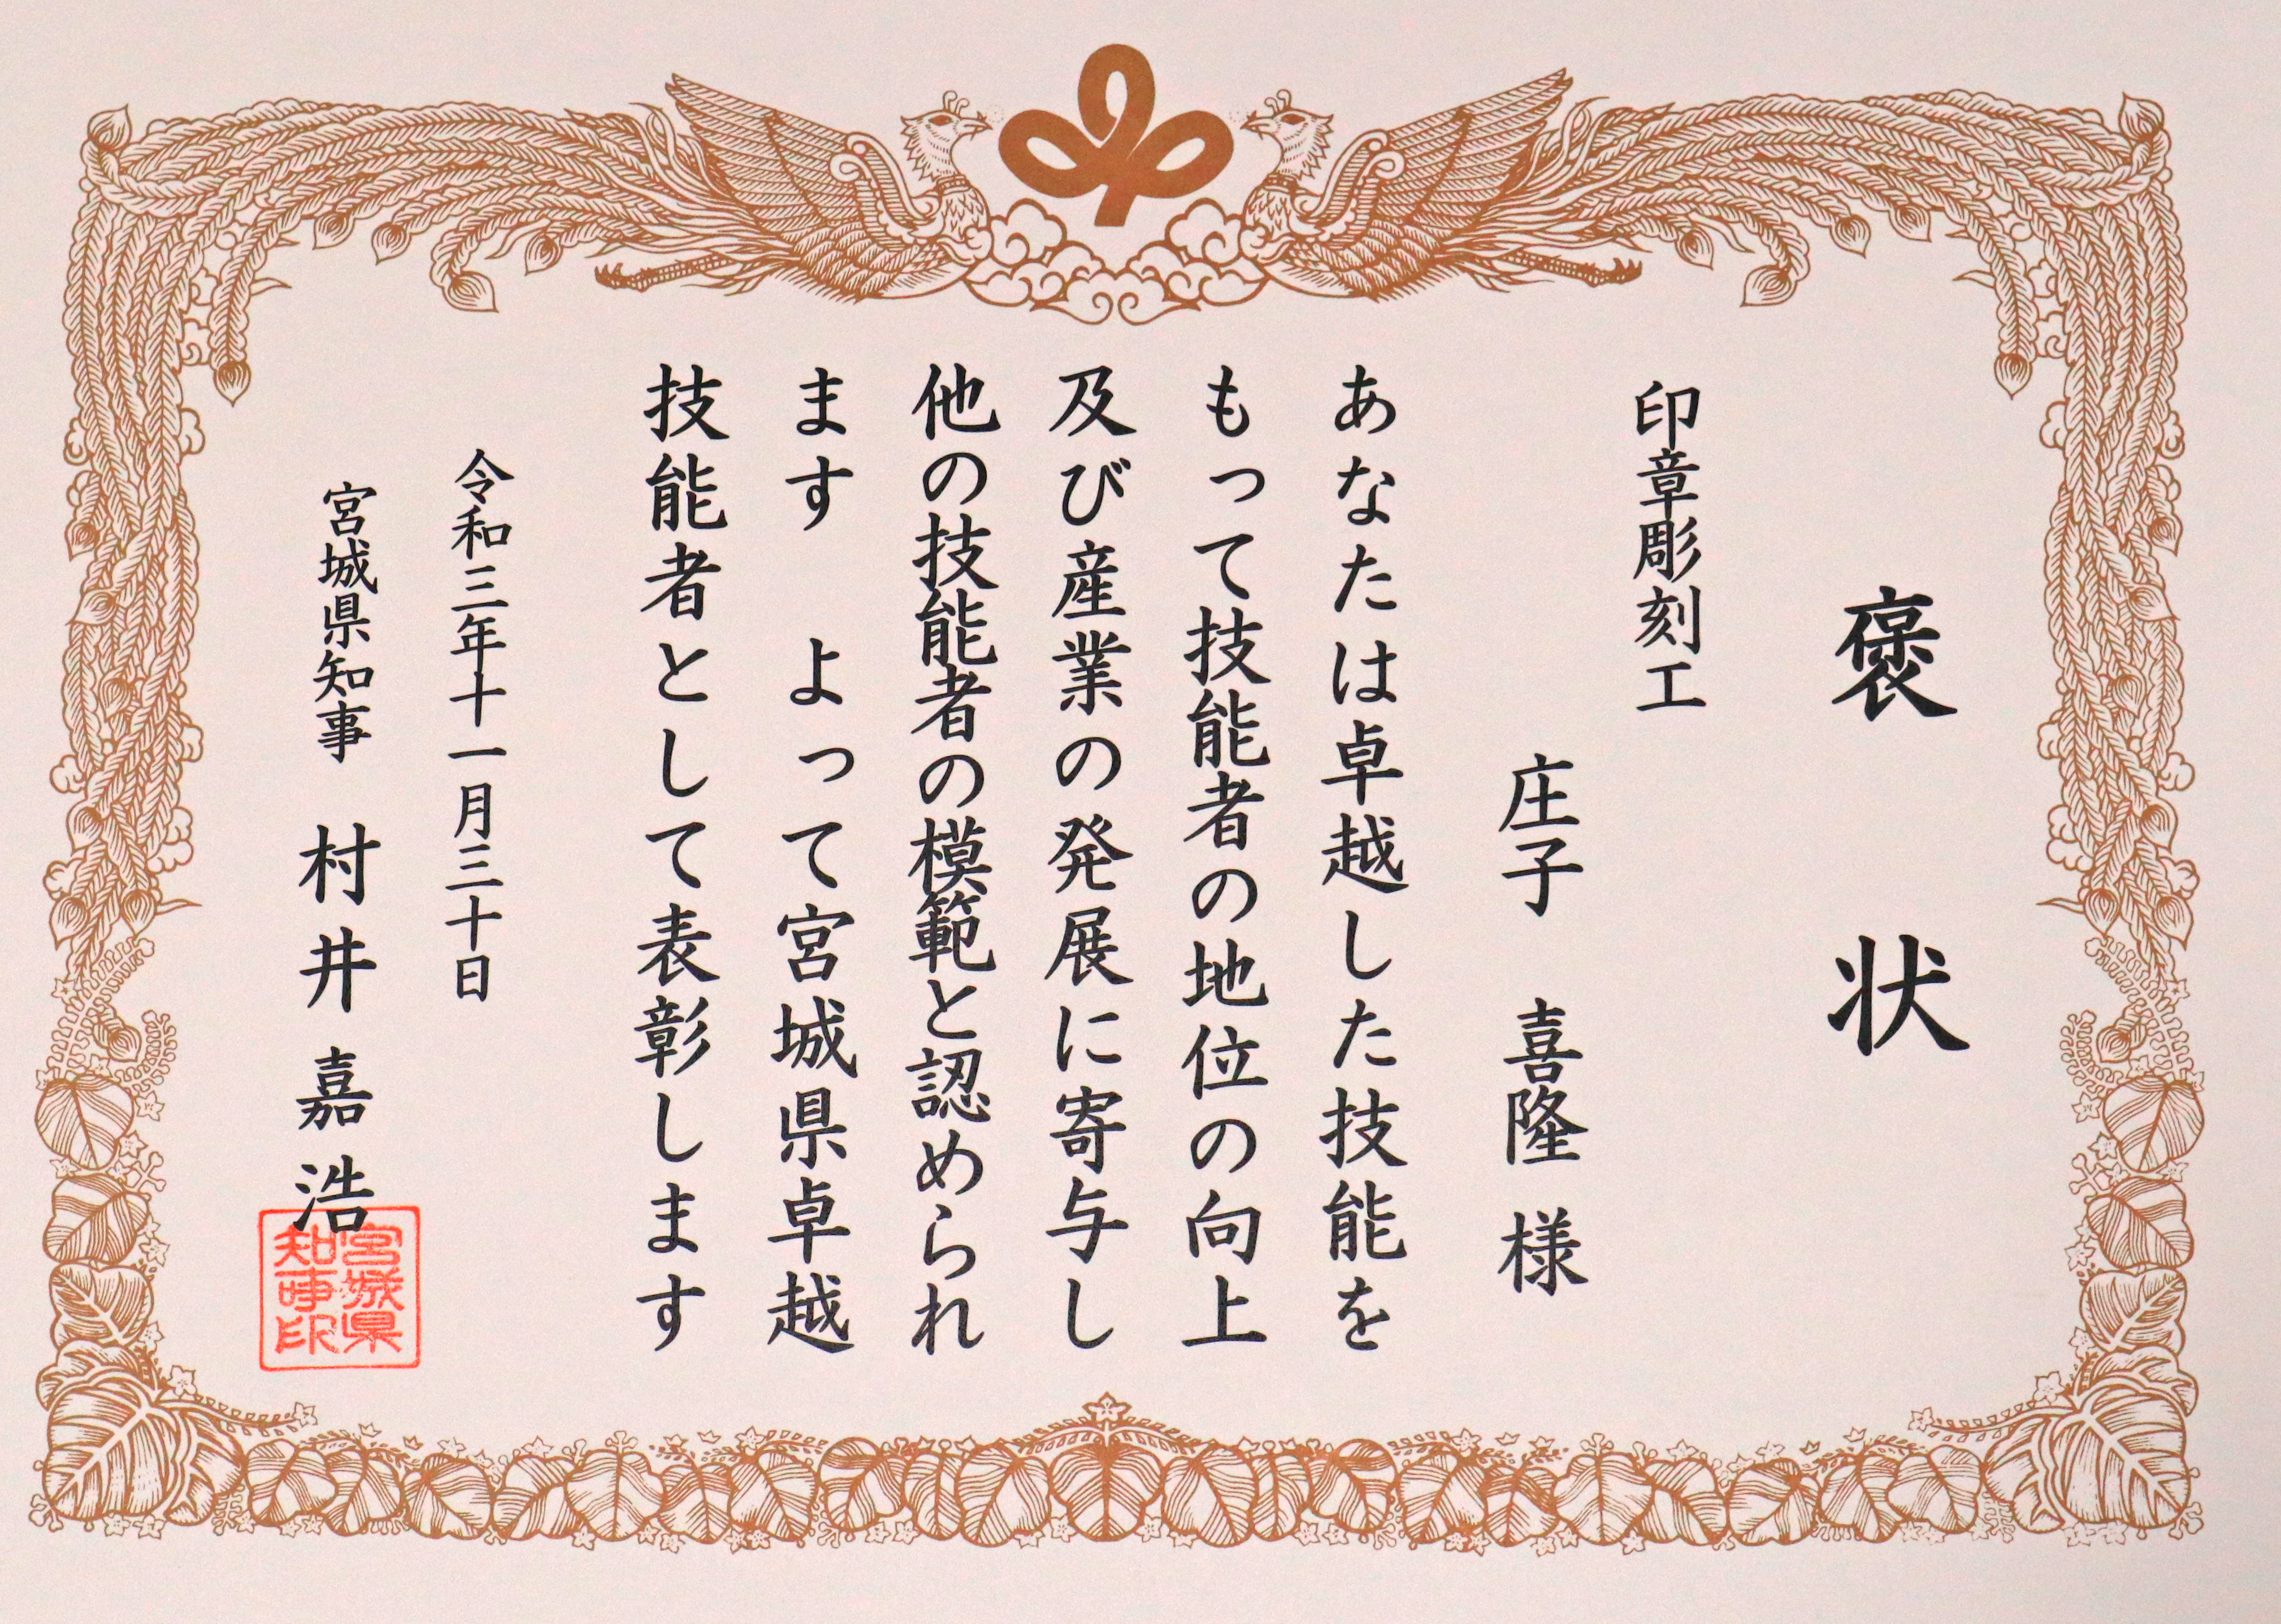 褒状
印章彫刻工
庄子　喜隆　様
あなたは卓越した技能を
もって技能者の地位の向上
及び産業の発展に寄与し
他の技能者の模範と認められ
ます　よって宮城県卓越
技能者として表彰します
令和三年十一月三十日
宮城県知事　村井嘉浩
宮城県
知事印